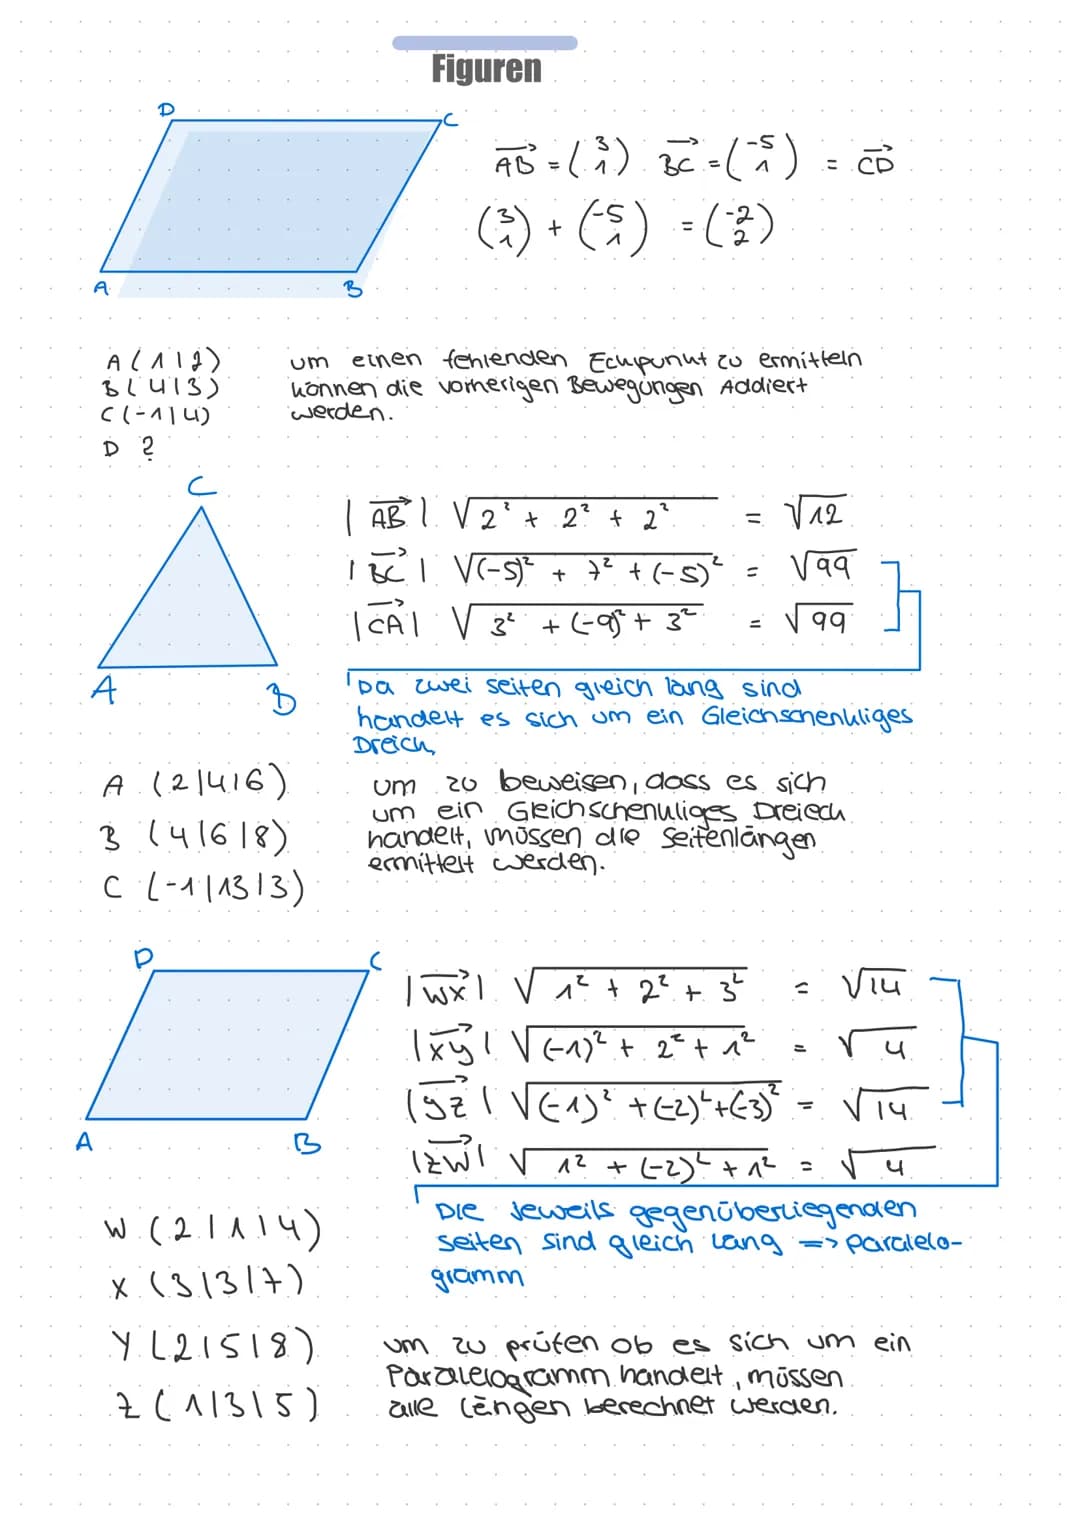 Figuren
D
C
A
B
AB = (3 1) BC = (-5 1) = CD
(3 1) + (-5 1) = (-2 2)
A (1|2)
B (4|3)
C (-1|4)
D ?
um einen fehlenden Eckpunkt zu ermitteln
können die vorherigen Bewegungen Addiert
werden.
C
A
B
|AB| √2² + 2² + 2² = √12
|BC| √(-5)² + 7² + (-5)² = √99
|CA| √3² + (-9)² + 3² = √99
Da zwei seiten gleich lang sind
handelt es sich um ein Gleichschenkliges
Dreick,
A (2|4|6)
B (4|6|8)
C (-1|13|3)
um zu beweisen, dass es sich
um ein Gleichschenkliges Dreieck
handelt, müssen die Seitenlängen
ermittelt werden.
D
C
A
B
|WX| √1² + 2² + 3² = √14
|XY| √(-1)² + 2² + 1² = √4
|YZ| √(-1)² + (-2)² + (-3)² = √14
|ZW| √1² + (-2)² + 1² = √4
Die Jeweils gegenüberliegenden
seiten sind gleich lang => paralelo-
gramm
W (2|1|4)
X (3|3|7)
Y (2|5|8)
Z (1|3|5)
um zu prüfen ob es sich um ein
Paralelogramm handelt, müssen
alle Längen berechnet werden.